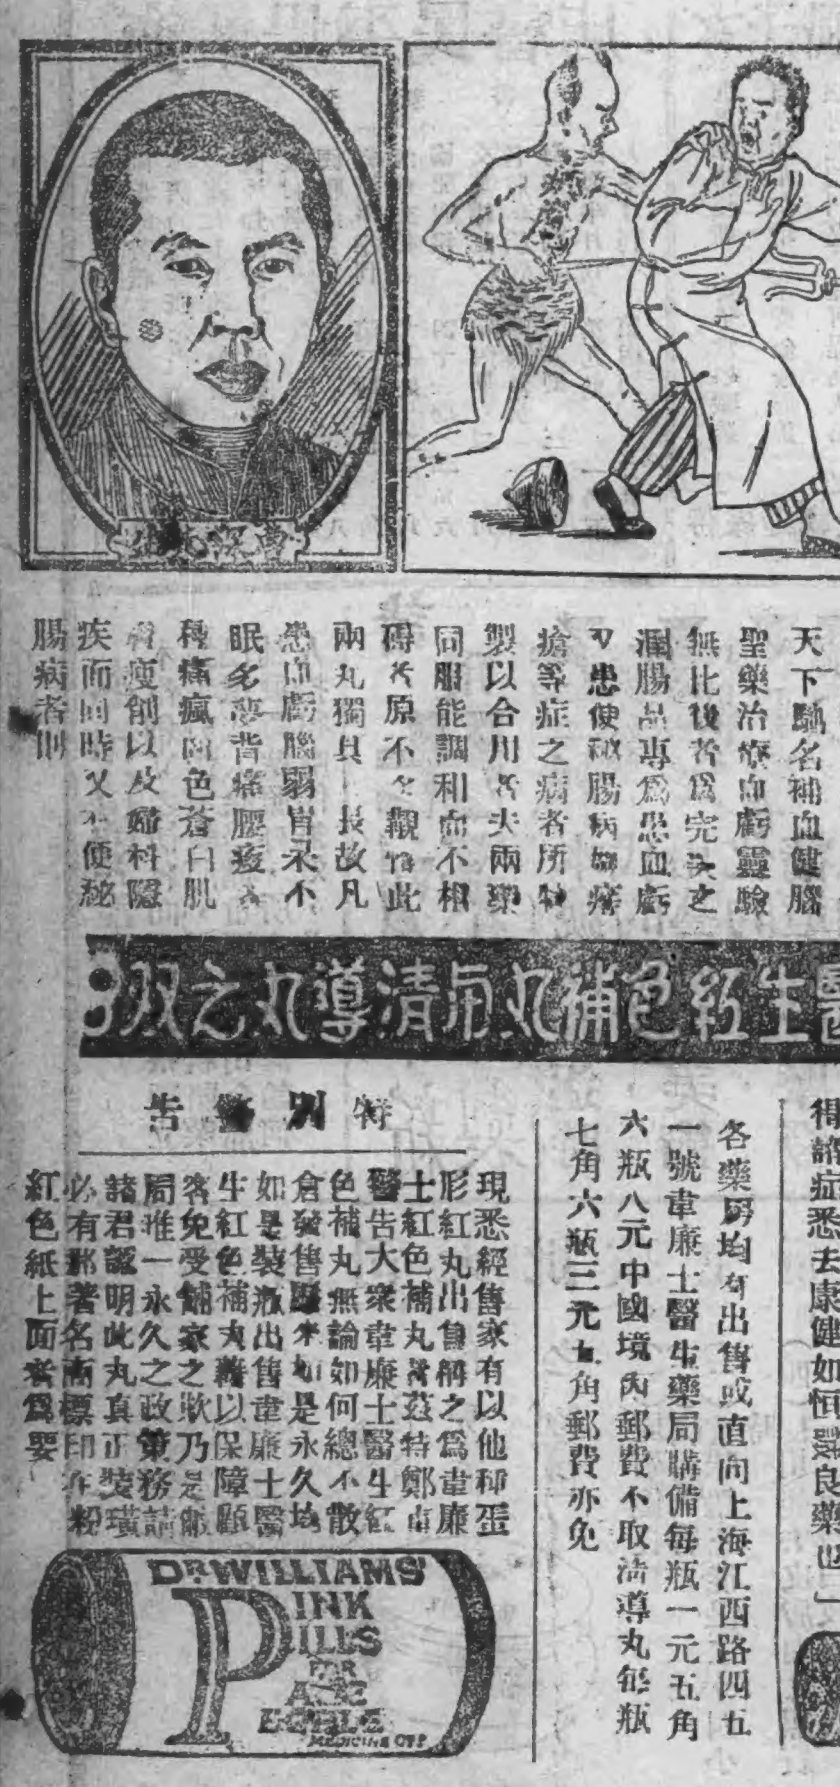 天下馳名補血健腦
聖藥治療血虧靈驗
無比後者爲完美之
潤腸品專爲患血虧
又患便秘腸病如痔
瘡等症之病者所特
製以合用者夫兩藥
同服能調和而不相
礙者原不多覯惟此
兩丸獨具長故凡
患血虧腦弱胃呆不
眠多夢背痛腰痠各
種痛瘋面色蒼白肌
膚瘦削以及婦科隱
疾而同時又大便秘
腸病者則
醫生紅色補丸與清導丸之双
得諸症悉去康健如恒洵良藥也
各藥房均有出售或直向上海江西路四五
一號韋廉士醫生藥局購備每瓶一元五角
六瓶八元中國境內郵費不取清導丸每瓶
七角六瓶三元九角郵費亦免
特別警告
現悉經售家有以他種蛋
形紅丸出售稱之爲韋廉
士紅色補丸者茲特鄭重
警告大衆韋廉士醫生紅
色補丸無論如何總不散
倉發售歷來如是永久均
如是裝瓶出售韋廉士醫
生紅色補丸藉以保障顧
客免受舖家之欺乃是敝
局唯一永久之政策務請
諸君認明此丸真正裝璜
必有那著名商標印在粉
紅色紙上面者爲要
DR WILLIAMS'
PINK
PILLS
FOR
PALE
PEOPLE
MEDICINE CO